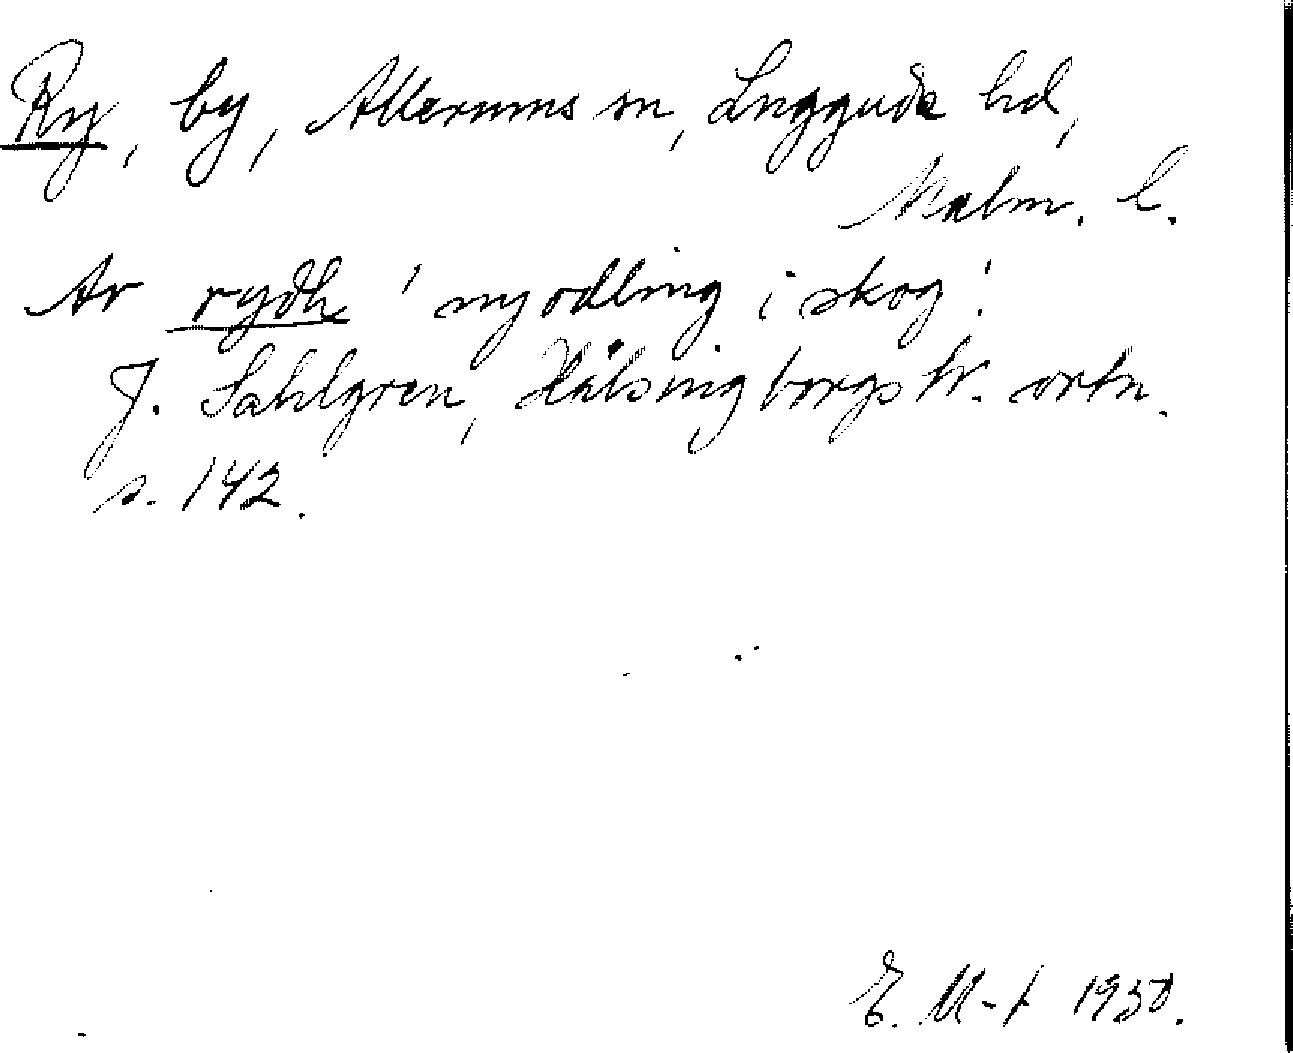 Ry, by, Allerums sn, Luggude hd,
Malm. l.
Av rydh 'nyodling i skog'.
J. Sahlgren, Hälsingborgstr. ortn.
s. 142.
E. M-t 1930.